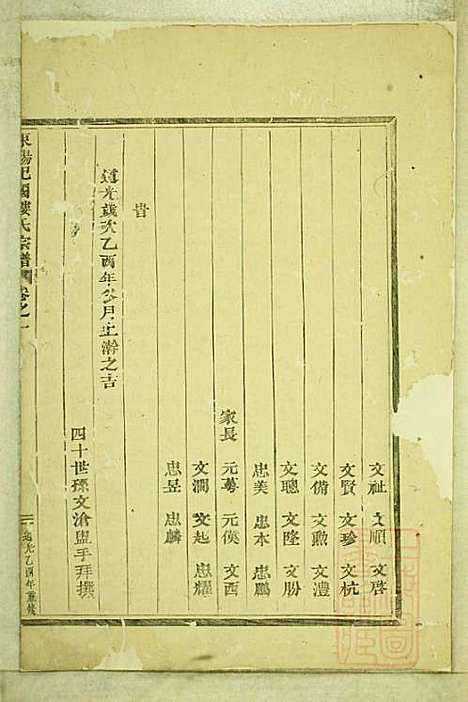 文祉 文順 文啓
文賢 文珍 文杭
文備 文勲 文澧
文聰 文隆 文肦
忠美 忠水 忠鵬
家長 元蕚 元僕 文西
文潤 文起 忠耀
忠昱 忠麟
旹
道光歲次乙酉年 月上澣之吉
四十世孫文滄盥手拜撰
東陽杞國樓氏宗譜 卷之一
道光乙酉年重修